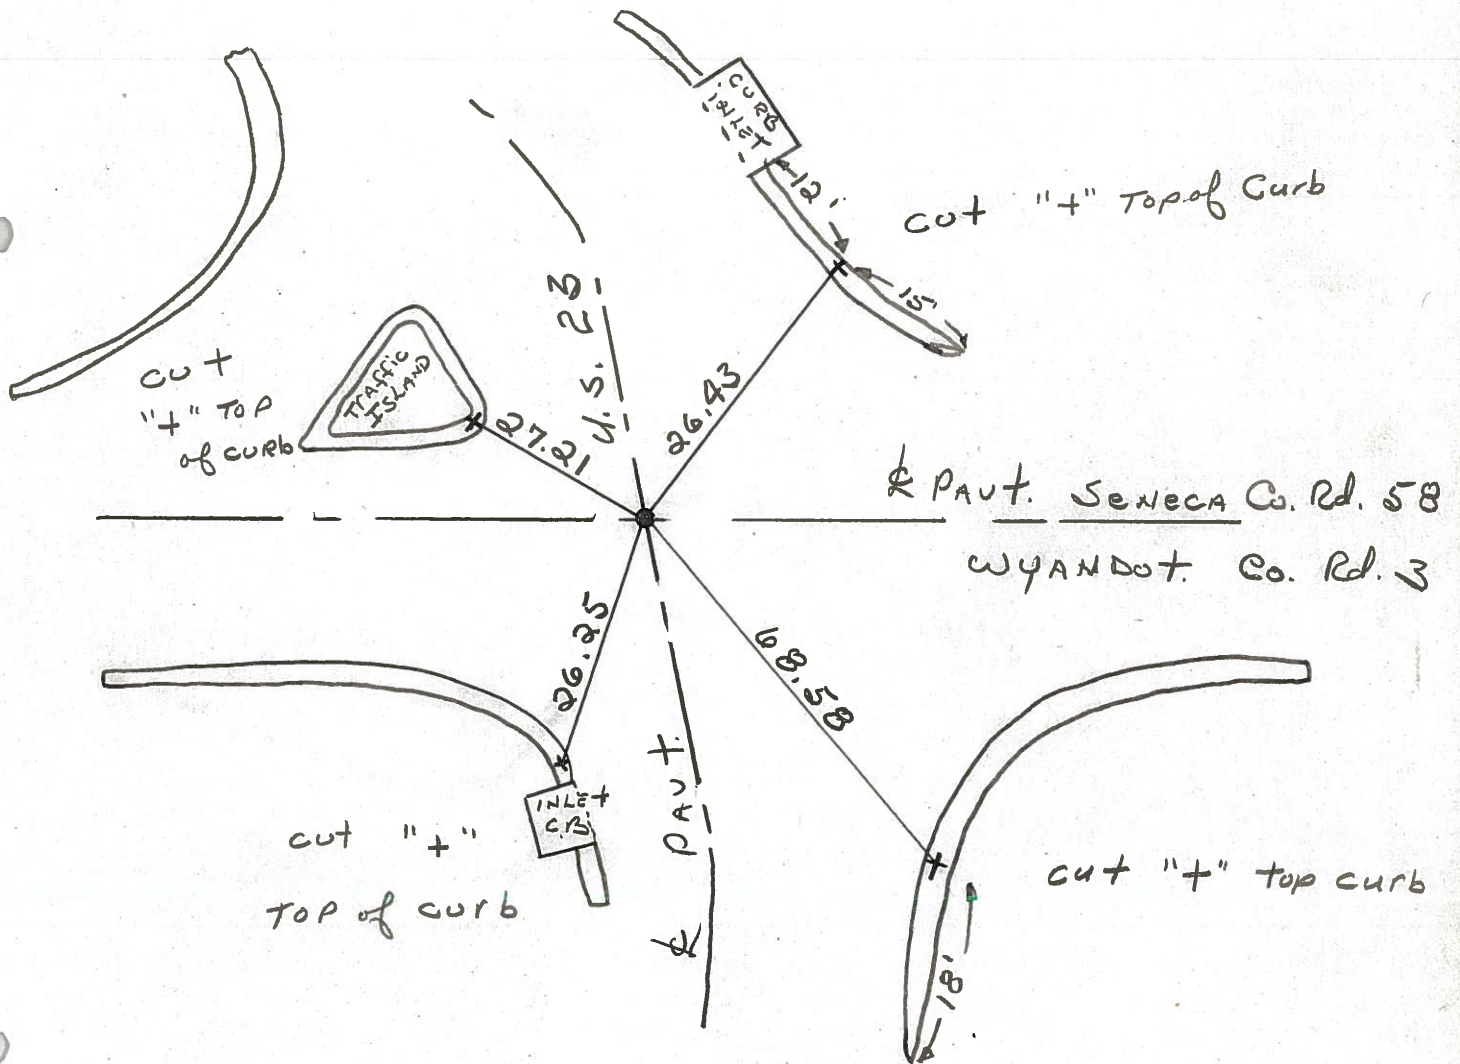 CURB
INLET
12'
cut "+" Top of Curb
15'
U.S. 23
cut
"+" TOP
of CURB
TRAFFIC
ISLAND
27.21
26.43
℄ PAVt. SENECA Co. Rd. 58
WYANDOt. Co. Rd. 3
26.25
68.58
INLEt
C.B.
cut "+"
TOP of curb
℄ PAVT.
cut "+" top curb
18'